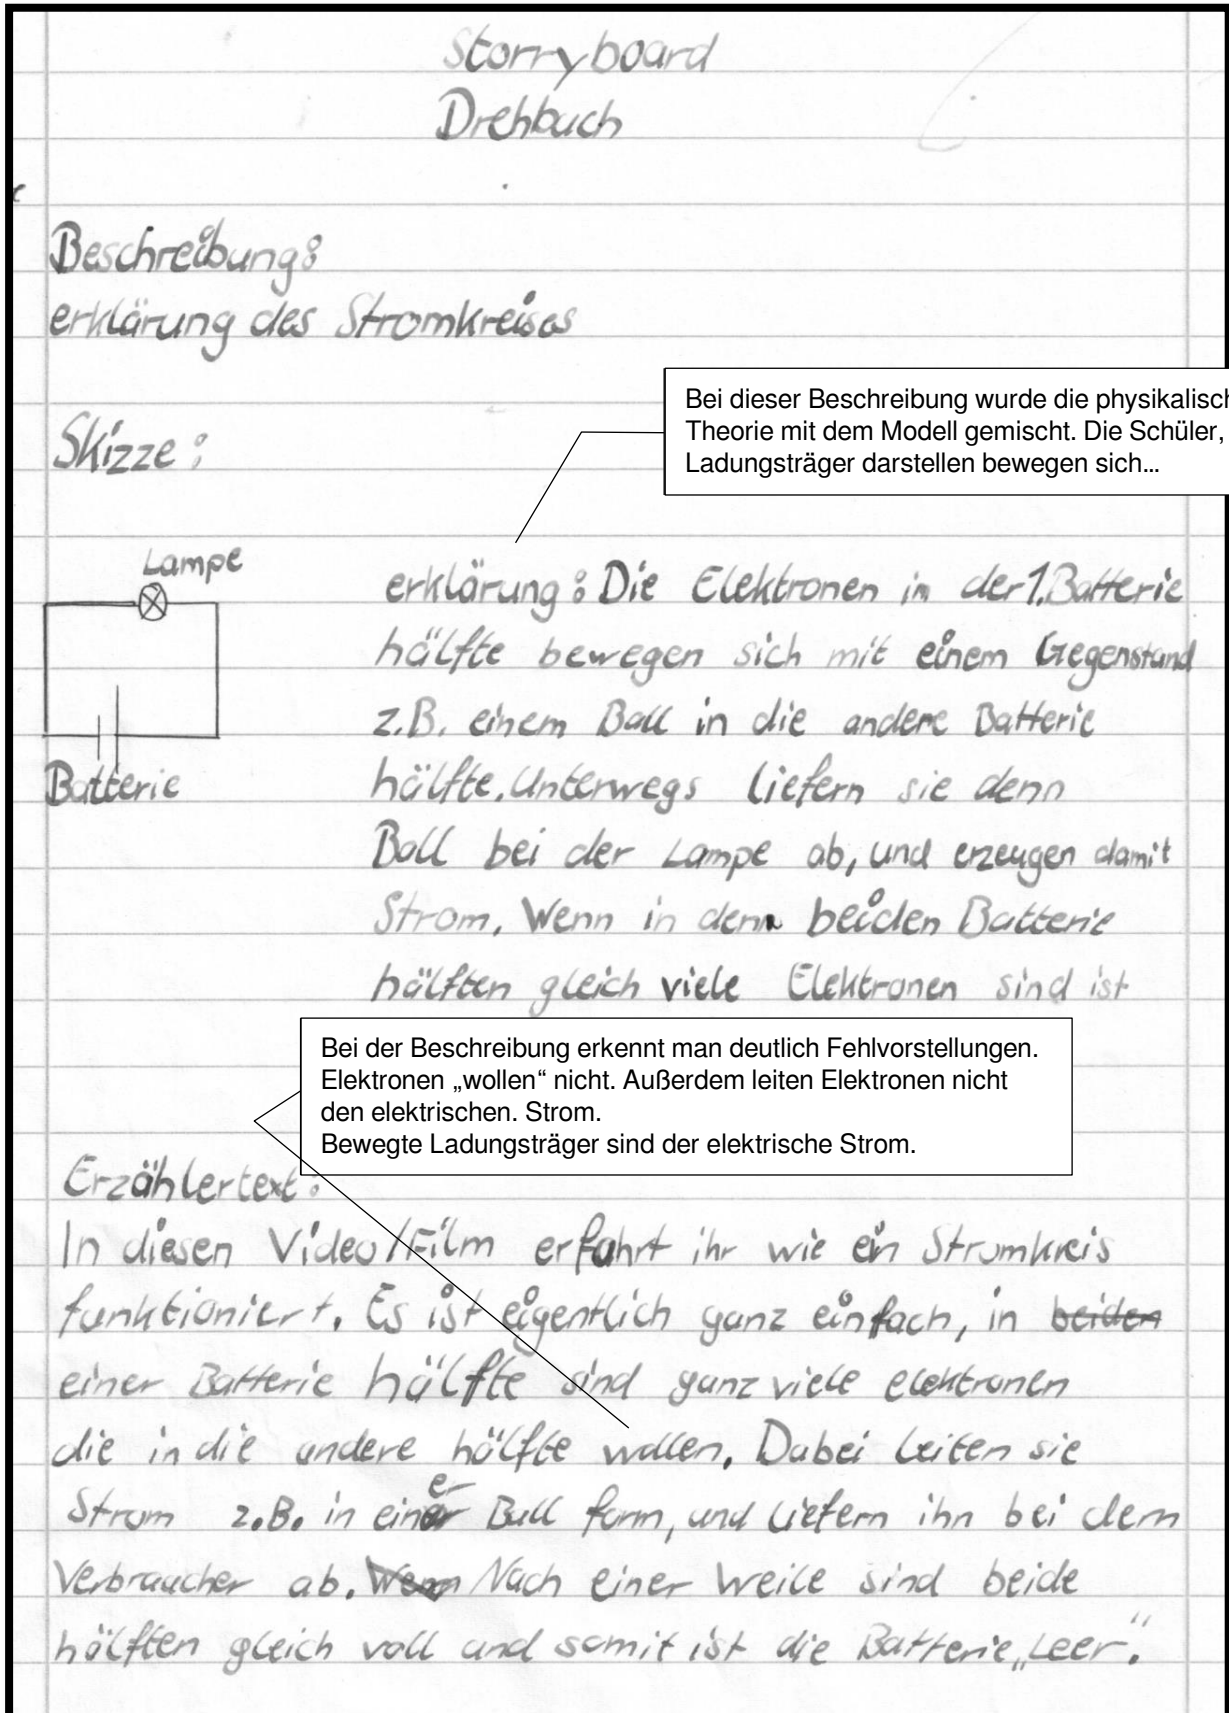 Storryboard
Drehbuch
Beschreibung:
erklärung des Stromkreises
Bei dieser Beschreibung wurde die physikalisch
Theorie mit dem Modell gemischt. Die Schüler,
Ladungsträger darstellen bewegen sich...
Skizze:
Lampe
Batterie
erklärung: Die Elektronen in der 1. Batterie
hälfte bewegen sich mit einem Gegenstand
z.B. einem Ball in die andere Batterie
hälfte. Unterwegs liefern sie denn
Ball bei der Lampe ab, und erzeugen damit
Strom. Wenn in denn beiden Batterie
hälften gleich viele Elektronen sind ist
Bei der Beschreibung erkennt man deutlich Fehlvorstellungen.
Elektronen „wollen“ nicht. Außerdem leiten Elektronen nicht
den elektrischen. Strom.
Bewegte Ladungsträger sind der elektrische Strom.
Erzählertext:
In diesen Video/Film erfahrt ihr wie ein Stromkreis
funktioniert. Es ist eigentlich ganz einfach, in beiden
einer Batterie hälfte sind ganz viele elektronen
die in die andere hälfte wollen. Dabei leiten sie
Strom z.B. in einer Ball form, und liefern ihn bei dem
Verbraucher ab. Wenn Nach einer Weile sind beide
hälften gleich voll und somit ist die Batterie „Leer“.